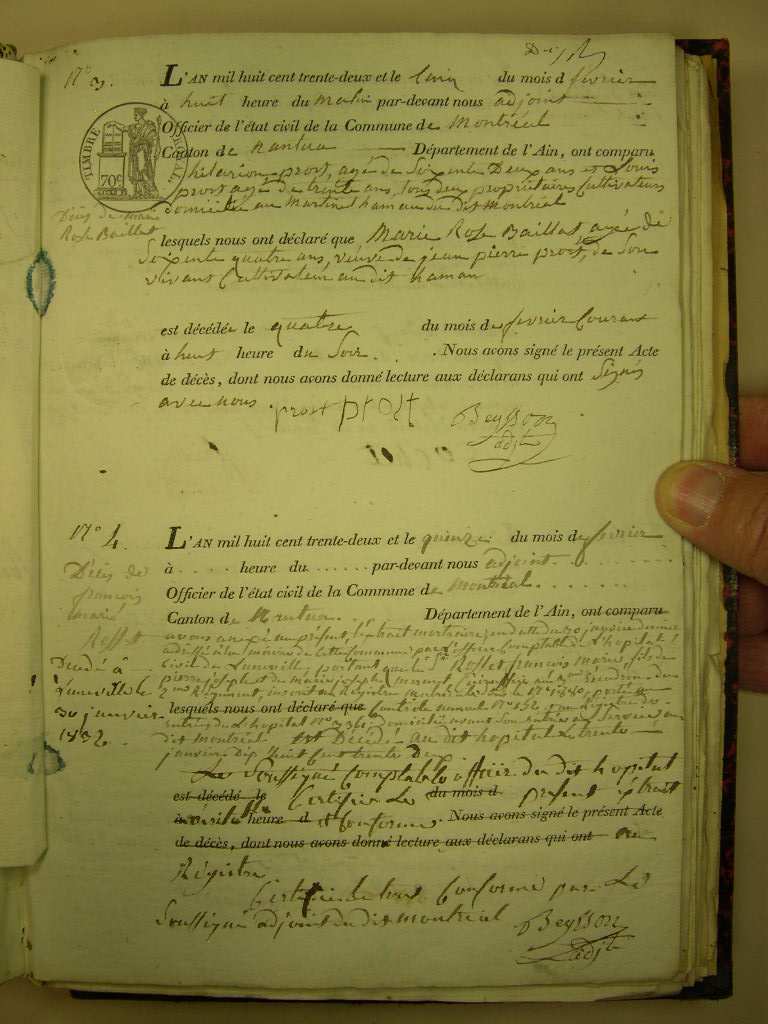 N.° 3.
L'AN mil huit cent trente-deux et le cinq du mois d fevrier
à huit heure du matin par-devant nous adjoint
Officier de l'état civil de la Commune de Montréal
Canton de nantua Département de l'Ain, ont comparu
hilarion prost, agé de Soixente Deux ans et Louis
prost agé de trente ans, tous deux propriétaires Cultivateurs
domiciliés au Martinet hameau du dit Montréal
TIMBRE
70c
Décès de marie
Rose Baillat
lesquels nous ont déclaré que Marie Rose Baillat agée de
Soixente quatre ans, veuve de jean pierre prost, de Son
vivant Cultivateur au dit hamau
est décédée le quatre du mois de fevrier Courant
à huit heure du Soir. Nous avons signé le présent Acte
de décès, dont nous avons donné lecture aux déclarans qui ont Signés
avec nous. prost prost Beysson
adjt
N.° 4.
L'AN mil huit cent trente-deux et le quinze du mois de fevrier
à heure du par-devant nous adjoint
Officier de l'état civil de la Commune de Montréal
Canton de Nantua Département de l'Ain, ont comparu
Décès de
françois
marie
Rosset
Decedé à
Luneville le
30 janvier
1832.
avons annexé au présent, l'extrait mortuaire, en date du 30 janvier
adressé à la mairie de cette Commune par l'officier Comptable de l'hopital
Civile de Luneville, portant que le Sr Rosset françois marie, fils de
pierre joseph et de marie joseph
Régiment,
lesquels nous ont déclaré que
l'hopital domicilié avant Son entrée au Service au
dit Montréal est Décédé au dit hopital le trente
janvier Dix huit Cent trente Deux
Le Soussigné Comptable officier du dit hopital
est décédé le Certifie Le du mois d présent extrait
à heure d et Conforme Nous avons signé le présent Acte
de décès, dont nous avons donné lecture aux déclarans qui ont au
Régistre
Certifié de tout Conforme par Le
Soussigné adjoint du dit montréal Beysson
adjt